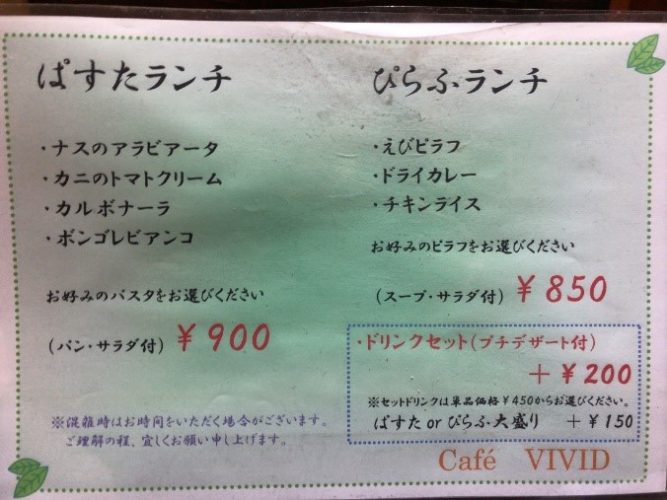 ぱすたランチ
・ナスのアラビアータ
・カニのトマトクリーム
・カルボナーラ
・ボンゴレビアンコ
お好みのパスタをお選びください
(パン・サラダ付) ￥900
※混雑時はお時間をいただく場合がございます。
ご理解の程、宜しくお願い申し上げます。
ぴらふランチ
・えびピラフ
・ドライカレー
・チキンライス
お好みのピラフをお選びください
(スープ・サラダ付) ￥850
・ドリンクセット(プチデザート付)
＋￥200
※セットドリンクは単品価格￥450からお選びください。
ぱすた or ぴらふ大盛り ＋￥150
Café VIVID